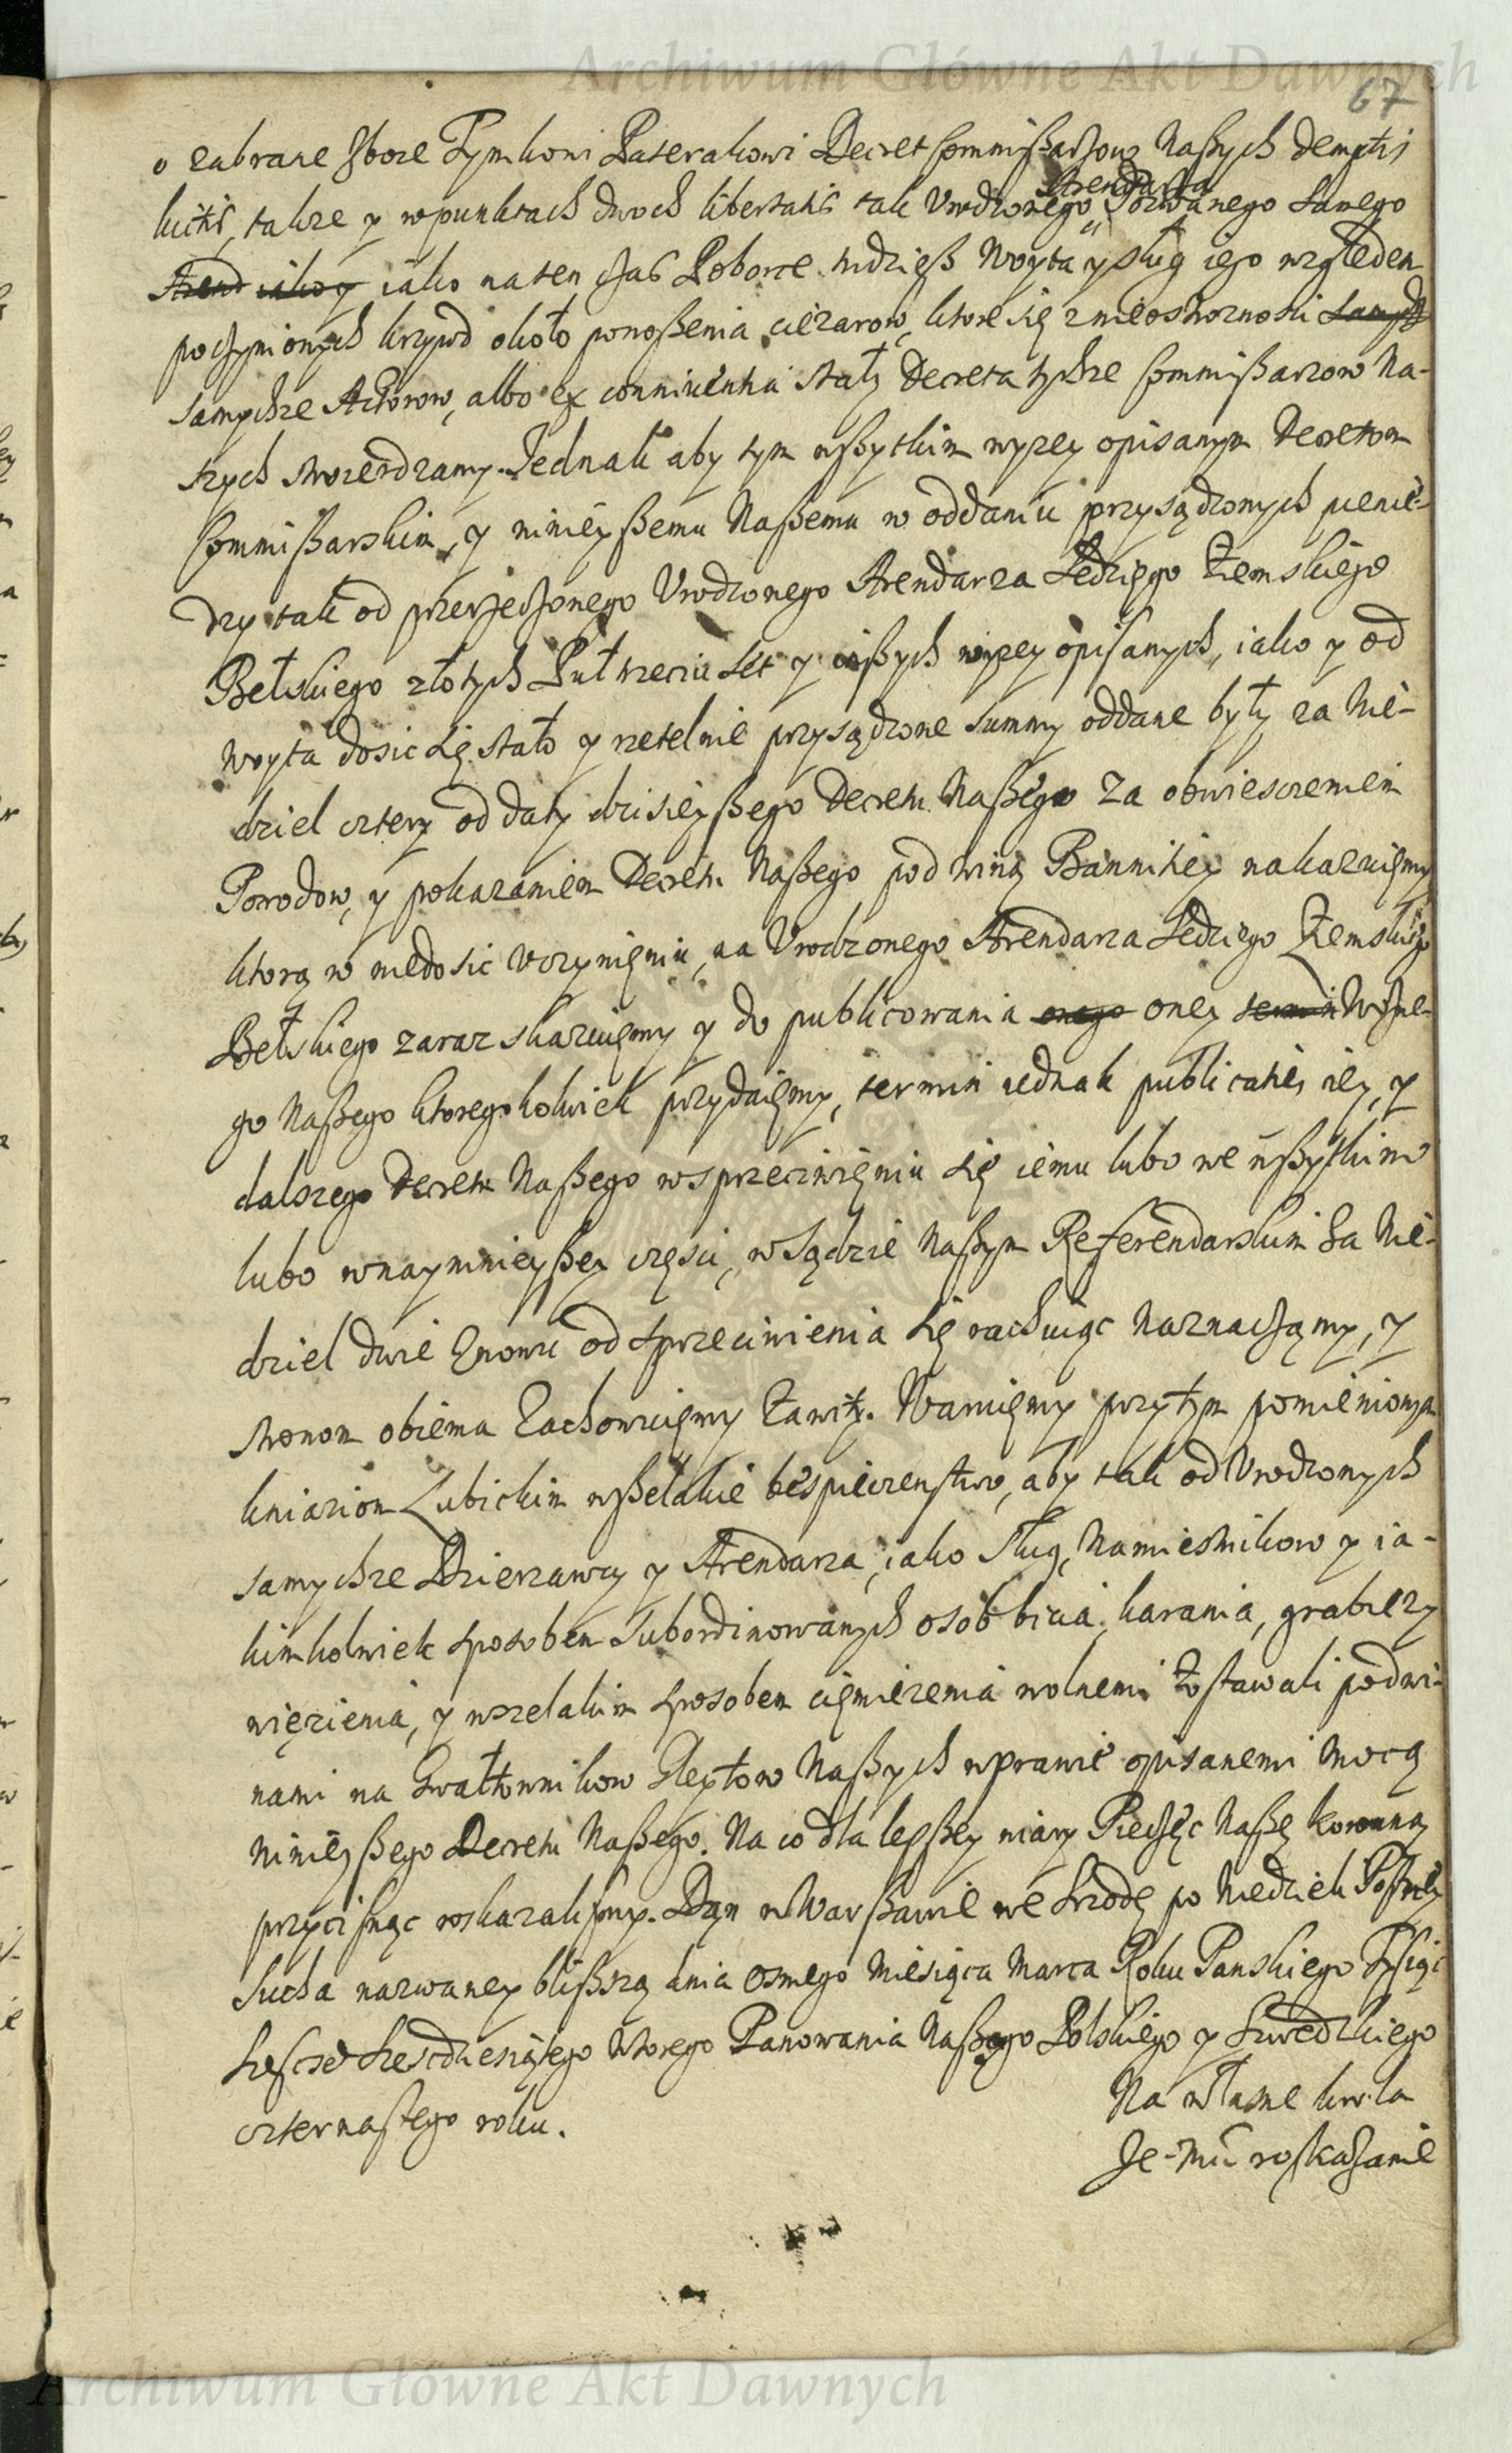 Archiwum Główne Akt Dawnych
67
o zabrane zboze Tymkowi Paterakowi Decret Commissarzow Naszych demptis
lucris, takze y w punktach dwoch libertatis tak Vrodzonego Pozwanego samego
Arendarza
Arend iako y iako na ten czas Poborce tudziesz Woyta y sług iego względem
poczynionych krzywd około ponoszenia cięzarow, ktore się z nieostroznosci samych
samychze Actorow, albo ex conniuentia stały Decreta tychze Commissarzow Na-
szych stwierdzamy. Jednak aby tym wszytkim wyzey opisanym Decretom
Commissarskim, y ninieyszemu Naszemu w oddaniu przysądzonych pienię-
dzy tak od przerzeczonego Vrodzonego Arendarza Sędziego Ziemskiego
Bełskiego złotych Pułtrzecia set y inszych wyzey opisanych, iako y od
Woyta dosic się stało y rzetelnie przysądzone summy oddane były za Nie-
dziel cztery od daty dzisieyszego Decretu Naszego za obwiesczeniem
Powodow, y pokazaniem Decretu Naszego pod winą Bannitiey nakazuięmy
ktorą w niedosic vczynięniu, na Vrodzonego Arendarza Sędziego Ziemskiego
Bełskiego zaraz skazuięmy y do publicowania onego oney termin Wozne-
go Naszego ktoregokolwiek przydaięmy, termin iednak publicatiey iey, y
dalszego Decretu Naszego w sprzeciwięniu się iemu lubo we wszytkim
lubo w naymnieyszey częsci, w Sądzie Naszym Referendarskim za Nie-
dziel dwie znowu od sprzeciwienia się rachuiąc naznaczamy, y
stronom obiema zachowuięmy zawity. Waruięmy przytym pomienionym
kniaziom Lubickim wszelakie bespieczenstwo, aby tak od Vrodzonych
samychze Dzierzawcy y Arendarza, iako sług, Namiesnikow y ia-
kimkolwiek sposobem subordinowanych osob bicia, karania, grabiezy
więzienia, y wszelakim sposobem cięmięzenia wolnemi zostawali pod wi-
nami na Gwałtownikow Gleytow Naszych w prawie opisanemi mocą
ninieyszego Decretu Naszego. Na co dla lepszey wiary Pieczęc Naszę koronną
przycisnąc roskazalismy. Dan w Warszawie we Srzodę po Niedzieli Postney
Sucha nazwaney bliszszą dnia osmego Miesiąca Marca Roku Panskiego Tysiąc
Szescset Szescdziesiątego wtorego Panowania Naszego Polskiego y Szwedzkiego
czternastego roku.
Na własne kro. la
Je-Mci roskazanie
Archiwum Główne Akt Dawnych